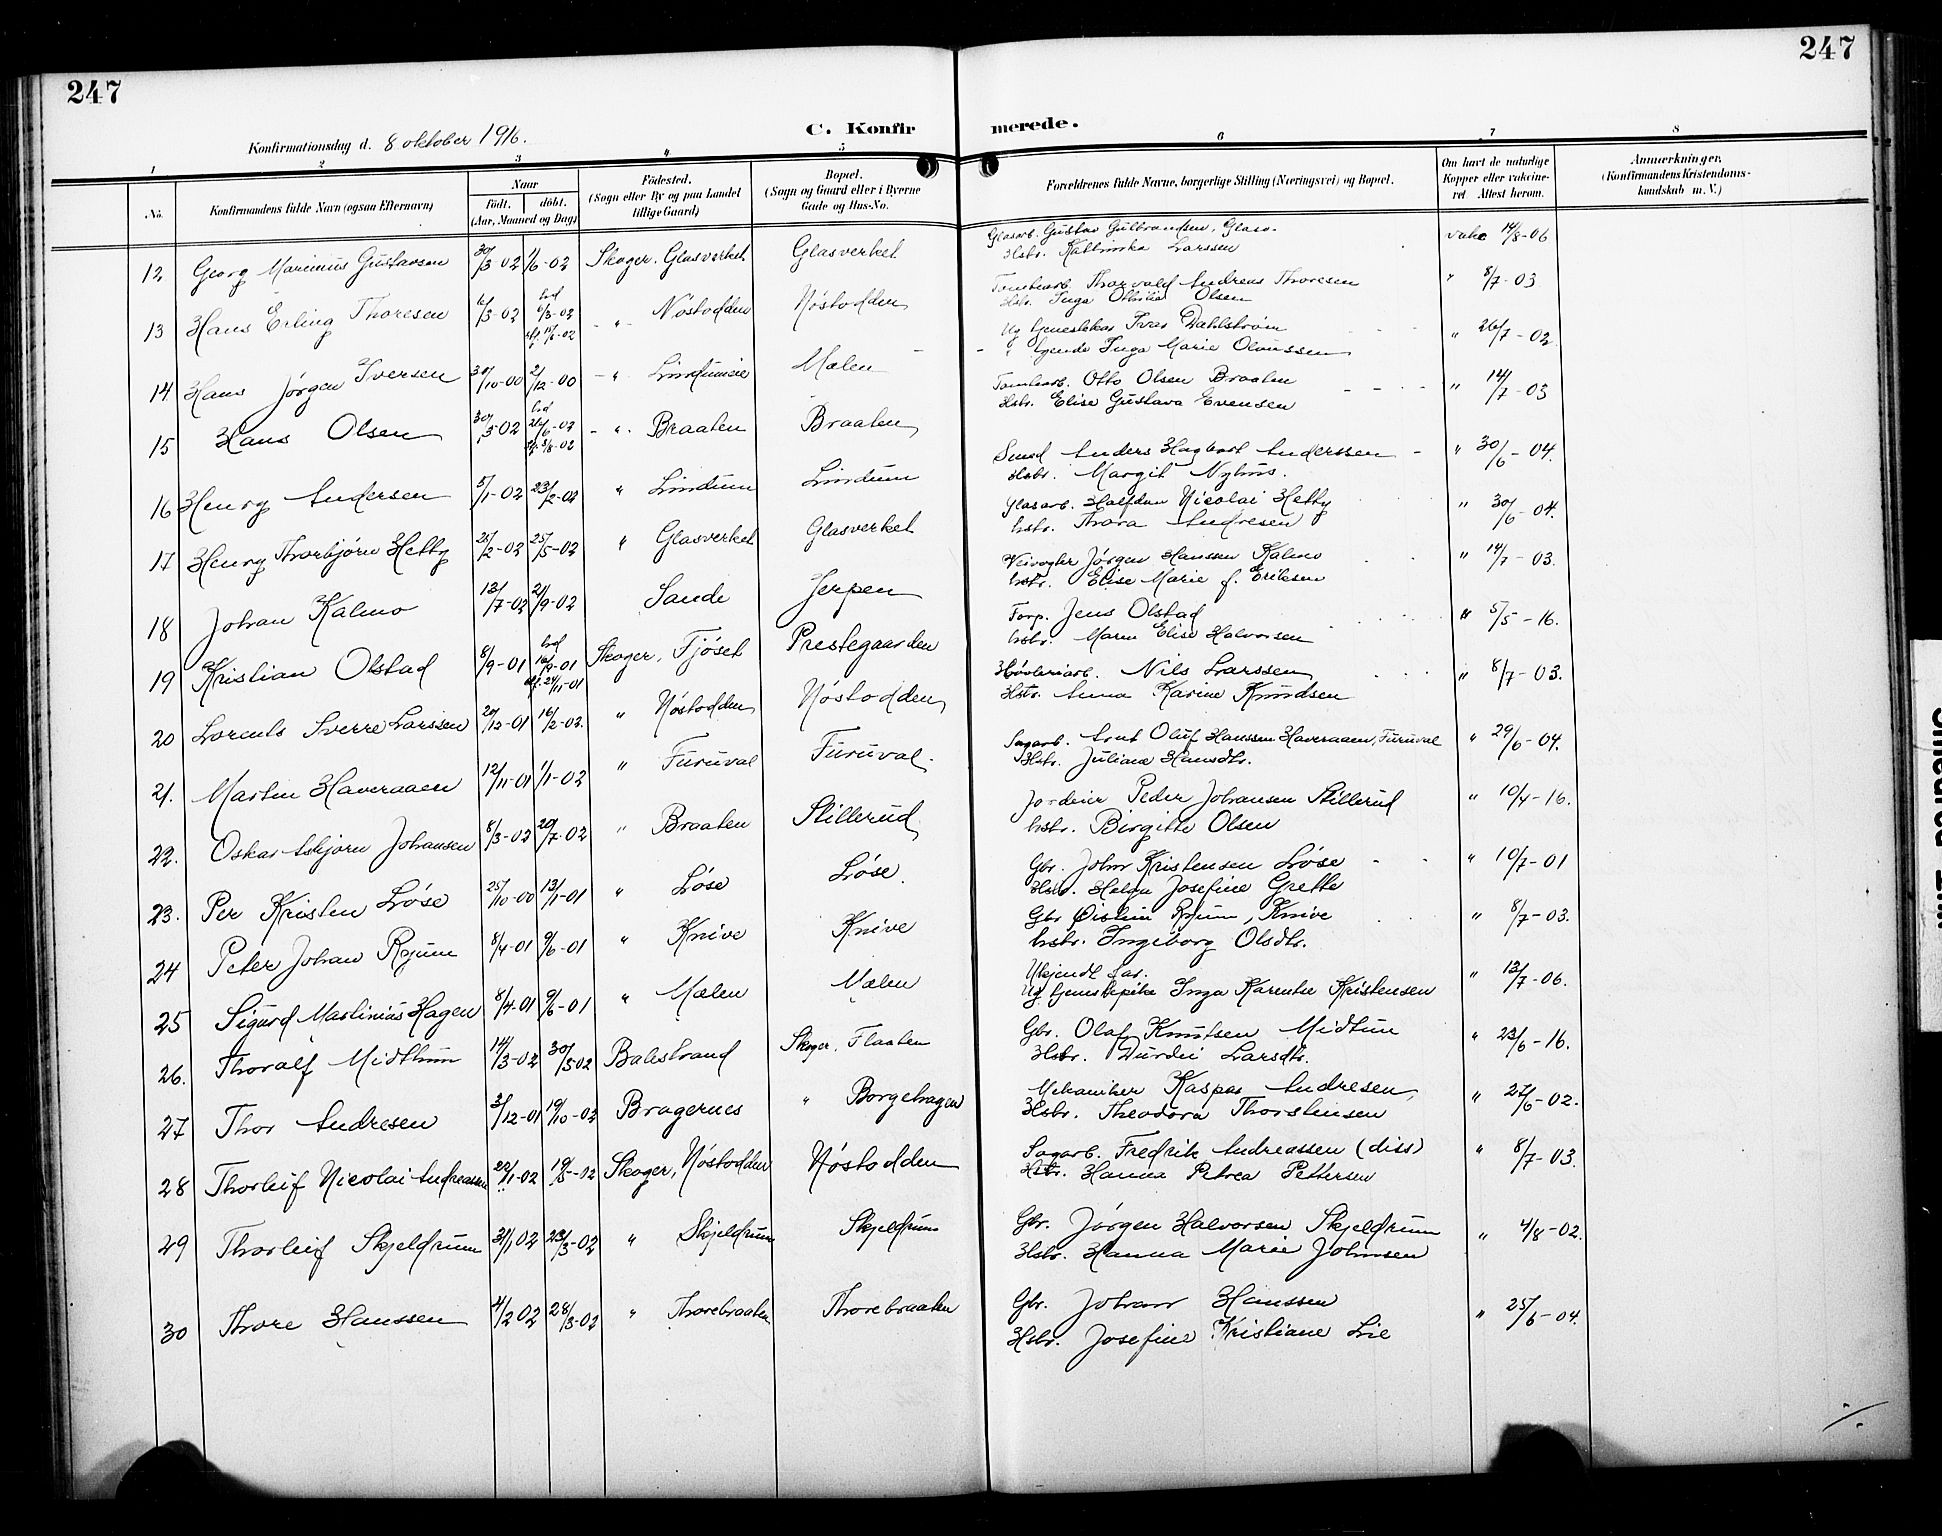 247
247
Konfirmationsdag d. 8 oktober 1916.
C. Konfirmerede.
1 2 3 4 5 6 7 8
No.
Konfirmandens fulde Navn (ogsaa Efternavn)
Naar
født. døbt.
(Aar, Maaned og Dag)
Fødested.
(Sogn eller By og paa Landet
tillige Gaard)
Bopæl.
(Sogn og Gaard eller i Byerne
Gade og Hus-No.
Forældrenes fulde Navne, borgerlige Stilling (Næringsvei) og Bopæl.
Om havt de naturlige
Kopper eller vakcine-
ret Attest herom.
Anmærkninger.
(Konfirmandens Kristendoms-
kundskab m. V.)
12 Georg Marinius Gustavsen 30/3-02 1/6-02 Skoger. Glasverket Glasverket
Glasarb. Gustav Gulbrandsen, Glasv. vakc 14/8-06
Hstr. Kathinka Larssen
13 Hans Erling Thoresen 6/3-02 6/3-02 -"- Nøstodden Nøstodden
Tomtearb. Thorvald Andreas Thoresen " 8/7-03
Hstr. Inga Othilia Olsen
14 Hans Jørgen Iversen 30/10-00 2/12-00 -" Mælen
Ug Iver Dahlstrøm " 26/7-02
" Inga Marie Olaussen
15 Hans Olsen 30/5-02 -"- Braaten Braaten
Tomtearb. Otto Olsen Braaten " 14/7-03
Hstr. Elise Gustava Evensen
16 Henry Andersen 5/1-02 23/2-02 " Lindum Lindum
Smed Anders Hagbart Anderssen " 30/6-04.
Hstr. Margit Nyhus.
17 Henry Thorbjørn Hetty 25/2-02 25/5-02 " Glasverket Glasverket
Glasarb. Halfdan Nicolai Hetty " 30/6-04.
hstr. Thora Andresen
18 Johan Kalmo 13/7-02 21/9-02 Sande Jerpen
Veivogter Jørgen Hanssen Kalmo " 14/7-03.
hstr. Elise Marie f. Eriksen
19 Kristian Olstad 8/9-01 Skoger, Fjøset Prestegaarden
Forp. Jens Olstad " 5/5-16.
hstr. Maren Elise Halvorsen
20 Lorents Sverre Larssen 20/12-01 16/2-02. " Nøstodden Nøstodden
Høvleriarb. Nils Larssen " 8/7-03.
Hstr. Anna Karine Knudsen
21. Martin Haveraaen 12/11-01 1/1-02 " Furuval Furuval.
Sagarb. Arnt Oluf Hanssen Haveraaen, Furuval " 29/6-04.
Hstr. Juliane Hansdtr.
22. Oskar Asbjørn Johansen 8/3-02 20/7-02 " Braaten Stillerud
Jordeier Peder Johansen Stillerud " 10/4-16.
hstr. Birgitte Olsen
23. Per Kristen Løse 25/10-00 13/1-01 " Løse Løse.
Gbr. Johan Kristensen Løse " 10/7-01
Hstr. Helga Josefine Grette
24 Peter Johan Ryum 8/4-01 9/6-01 " Knive Knive
Gbr Øistein Ryum, Knive " 8/7-03.
hstr. Ingeborg Olsdtr.
25 Sigurd Martinius Hagen 8/4-01 9/6-01 " Mælen Mælen
Ukjendt far. " 13/7-06.
Ug tjenestepike Inga Karentse Kristensen
26. Thoralf Midthun 14/3-02 30/5 02 Balestrand Skoger. Flaaten
Gbr. Olaf Knutsen Midtun " 23/6-16.
Hstr. Durdei Larsdtr.
27 Thor Andresen 3/12-01 19/10-02 Bragernes " Borgehagen
Mekaniker Kaspar Andresen, " 27/6-02.
Hstr. Theodora Thorstensen
28 Thorleif Nicolai Andreassen 22/1-02 19/5-02 Skoger, Nøstodden Nøstodden
Sagarb. Fredrik Andreassen (diss) " 8/7-03.
Hstr. Hanna Petrea Pettersen
29 Thorleif Skjeldrum 31/1 02 23/3-02 " Skjeldrum Skjeldrum
Gbr. Jørgen Halvorsen Skjeldrum " 4/8-02.
Hstr. Hanna Marie Johnsen
30 Thore Hanssen 4/2 02 28/3-02 " Thorebraaten Thorebraaten
Gbr. Johan Hanssen " 25/6-04.
Hstr. Josefine Kristiane Lie